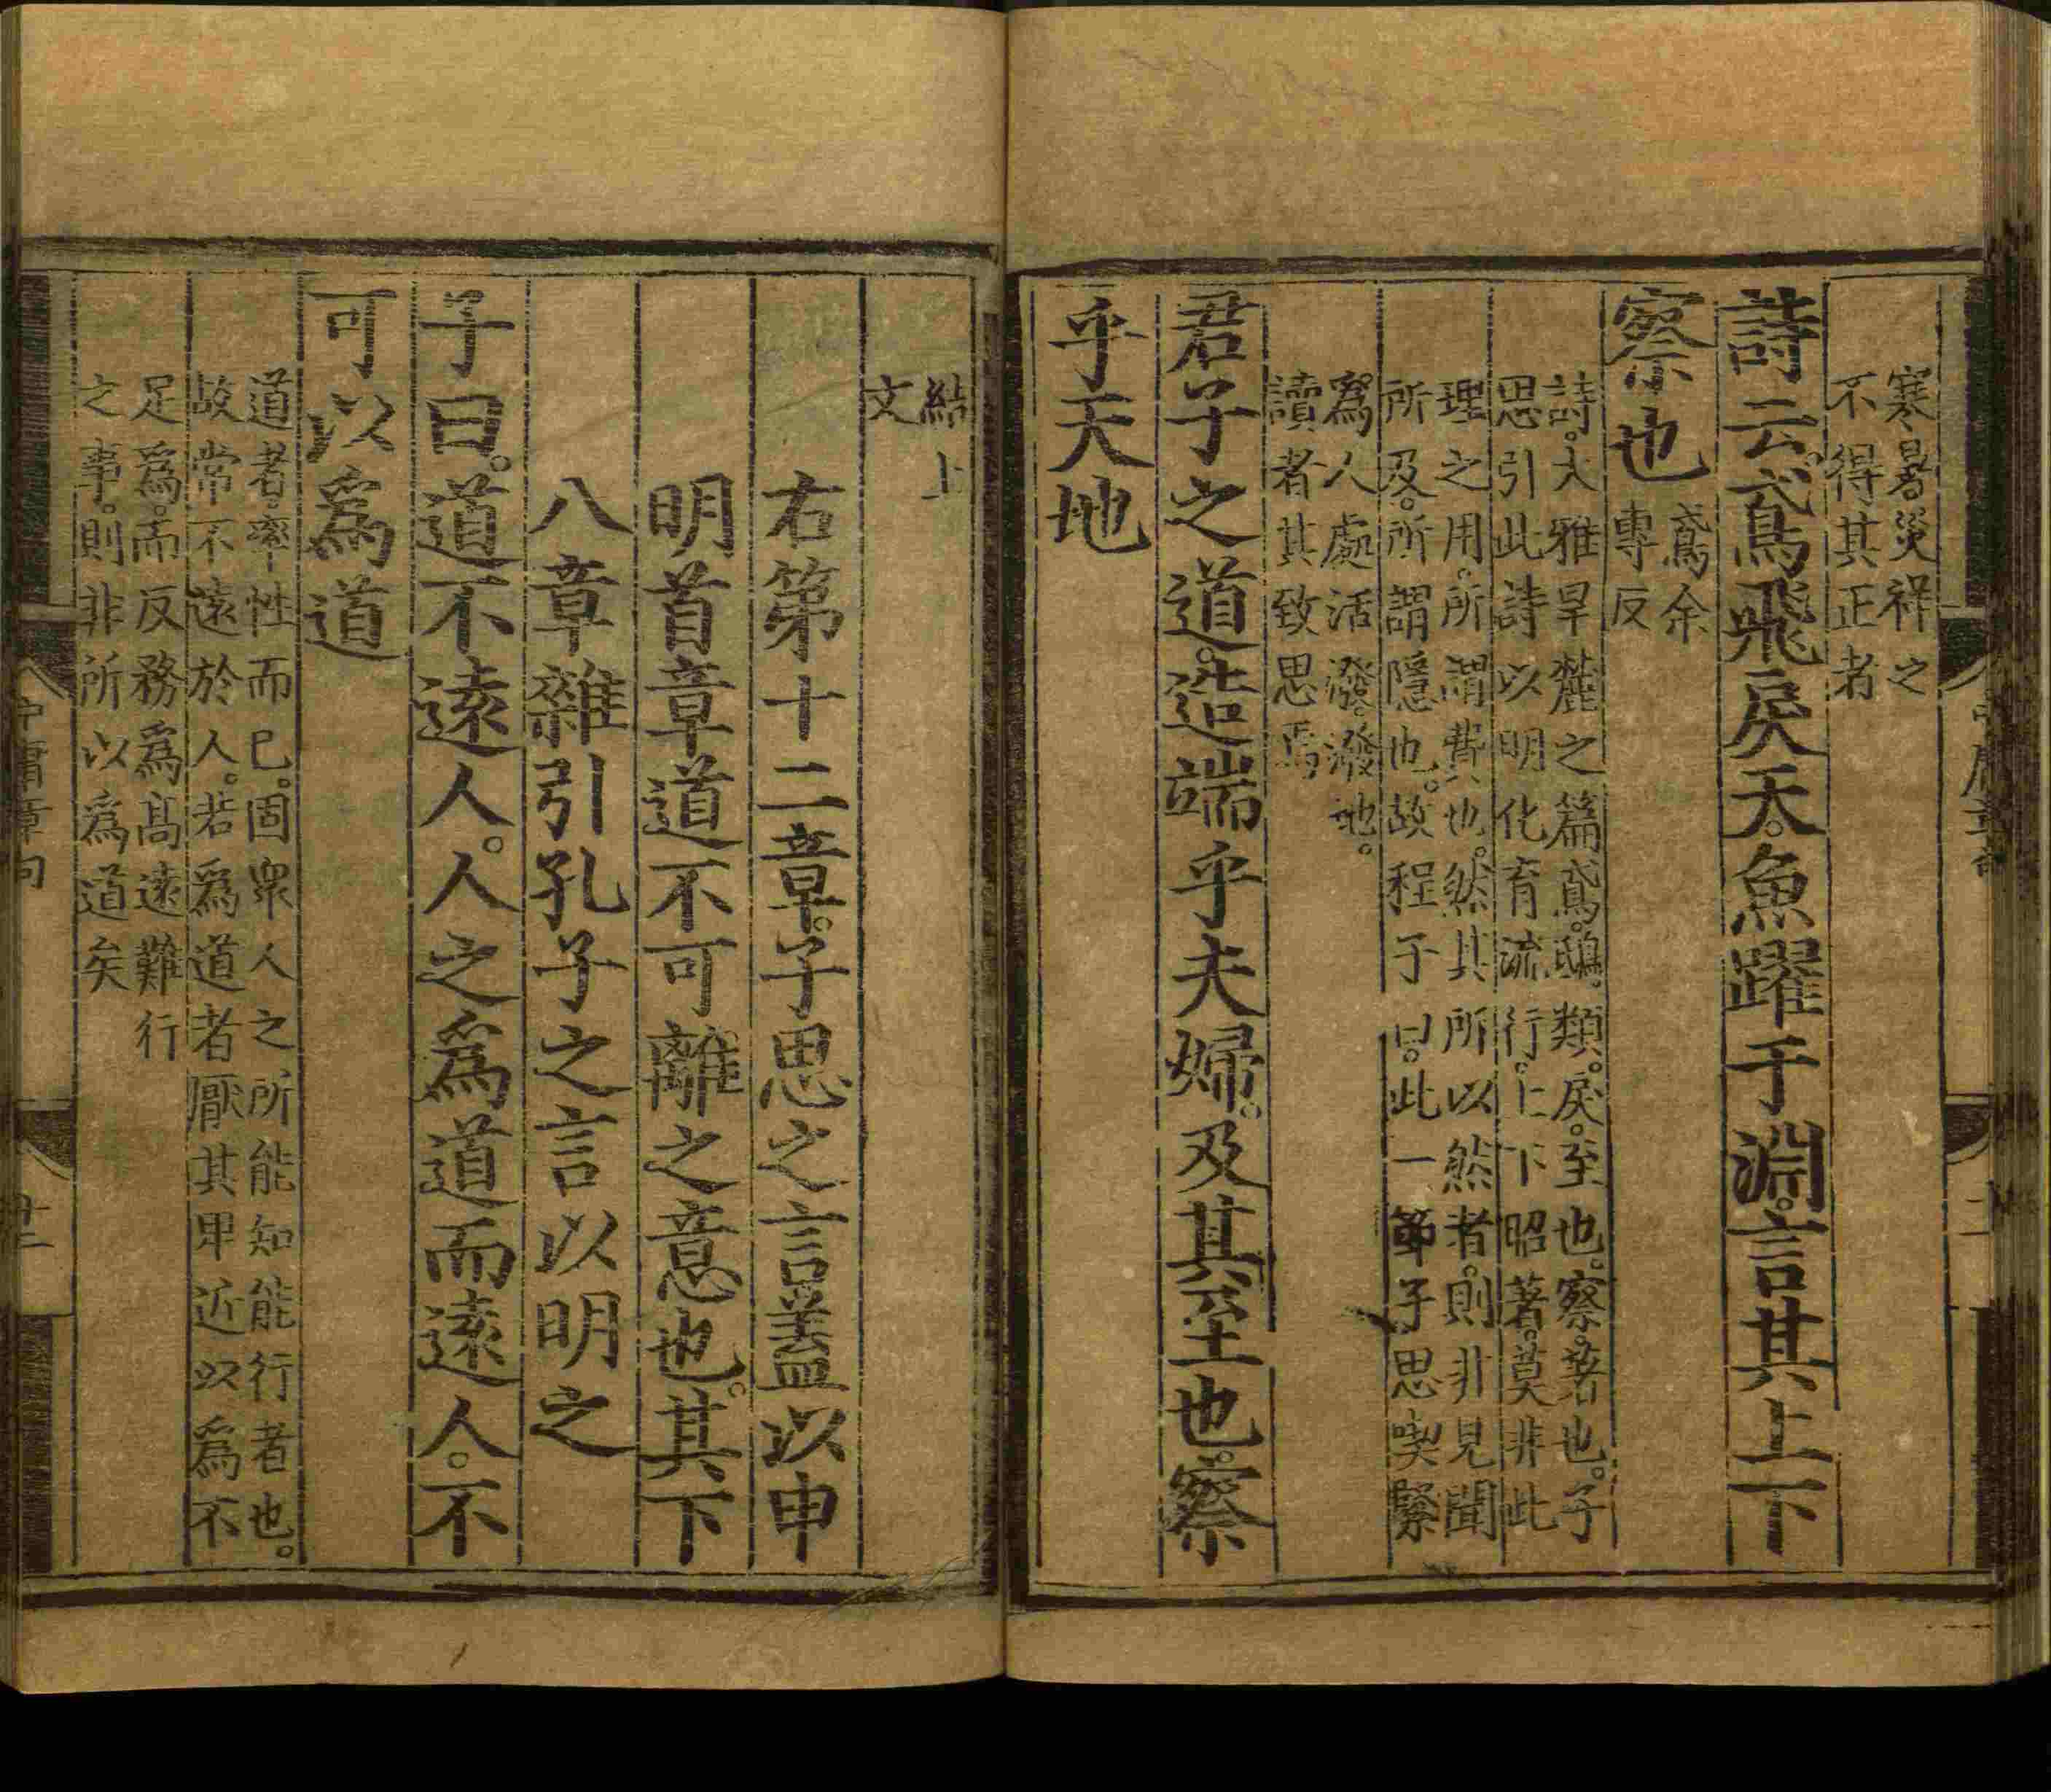 寒暑災祥之
不得其正者
詩云。鳶飛戾天。魚躍于淵。言其上下
察也
鳶余
專反
詩。大雅旱麓之篇。鳶。鴟類。戾。至也。察。著也。子
思引此詩以明化育流行。上下昭著。莫非此
理之用。所謂費也。然其所以然者。則非見聞
所及。所謂隱也。故程子曰。此一節子思喫緊
爲人處活潑。潑地。
讀者其致思焉
君子之道。造端乎夫婦。及其至也。察
乎天地
結上
文
右第十二章。子思之言蓋以申
明首章道不可離之意也。其下
八章雜引孔子之言以明之
子曰。道不遠人。人之爲道而遠人。不
可以爲道
道者。率性而已。固衆人之所能知能行者也。
故常不遠於人。若爲道者厭其卑近以爲不
足爲。而反務爲高遠難行
之事。則非所以爲道矣
中庸章句